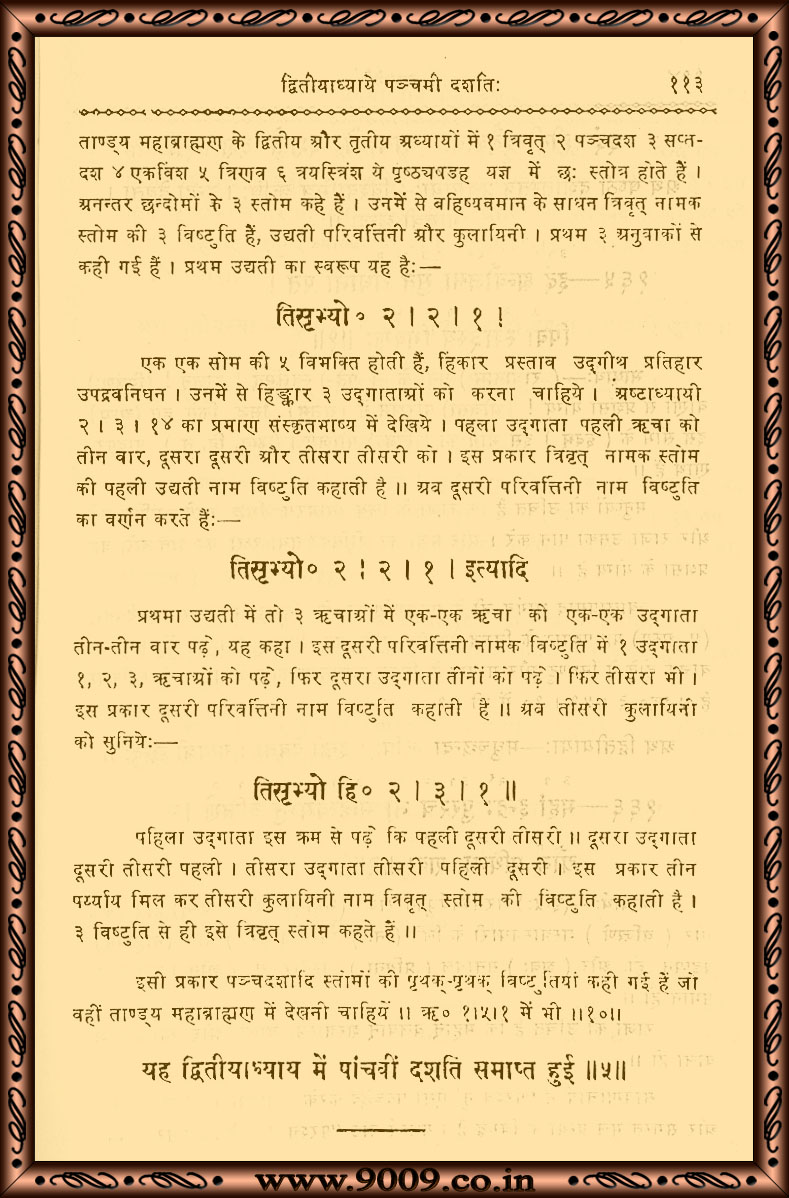 द्वितीयाध्याये पञ्चमी दशतिः ११३
ताण्ड्य महाब्राह्मण के द्वितीय और तृतीय अध्यायों में १ त्रिवृत् २ पञ्चदश ३ सप्त-
दश ४ एकविंश ५ त्रिणव ६ त्रयस्त्रिंश ये पृष्ठ्यषडह यज्ञ में छः स्तोत्र होते हैं ।
अनन्तर छन्दोमों के ३ स्तोम कहे हैं । उनमें से बहिष्यवमान के साधन त्रिवृत् नामक
स्तोम की ३ विष्टुति हैं, उद्यती परिवर्त्तिनी और कुलायिनी । प्रथम ३ अनुवाकों से
कही गई हैं । प्रथम उद्यती का स्वरूप यह है:—
तिसृभ्यो० २ । २ । १ !
एक एक सोम की ५ विभक्ति होती हैं, हिंकार प्रस्ताव उद्गीथ प्रतिहार
उपद्रवनिधन । उनमें से हिङ्कार ३ उद्गाताओं को करना चाहिये । अष्टाध्यायी
२ । ३ । १४ का प्रमाण संस्कृतभाष्य में देखिये । पहला उद्गाता पहली ऋचा को
तीन वार, दूसरा दूसरी और तीसरा तीसरी को । इस प्रकार त्रिवृत् नामक स्तोम
की पहली उद्यती नाम विष्टुति कहाती है ॥ अब दूसरी परिवर्त्तिनी नाम विष्टुति
का वर्णन करते हैं:—
तिसृभ्यो० २ ! २ । १ । इत्यादि
प्रथमा उद्यती में तो ३ ऋचाओं में एक-एक ऋचा को एक-एक उद्गाता
तीन-तीन वार पढ़े, यह कहा । इस दूसरी परिवर्त्तिनी नामक विष्टुति में १ उद्गाता
१, २, ३, ऋचाओं को पढ़े, फिर दूसरा उद्गाता तीनों को पढ़े । फिर तीसरा भी ।
इस प्रकार दूसरी परिवर्त्तिनी नाम विष्टुति कहाती है ॥ अब तीसरी कुलायिनी
को सुनिये:—
तिसृभ्यो हि० २ । ३ । १ ॥
पहिला उद्गाता इस क्रम से पढ़े कि पहली दूसरी तीसरी ॥ दूसरा उद्गाता
दूसरी तीसरी पहली । तीसरा उद्गाता तीसरी पहिली दूसरी । इस प्रकार तीन
पर्य्याय मिल कर तीसरी कुलायिनी नाम त्रिवृत् स्तोम की विष्टुति कहाती है ।
३ विष्टुति से ही इसे त्रिवृत् स्तोम कहते हैं ॥
इसी प्रकार पञ्चदशादि स्तोमों की पृथक्-पृथक् विष्टुतियां कही गई हैं जो
वहीं ताण्ड्य महाब्राह्मण में देखनी चाहियें ॥ ऋ० १।५।१ में भी ॥१०॥
यह द्वितीयाध्याय में पांचवीं दशति समाप्त हुई ॥५॥
www.9009.co.in